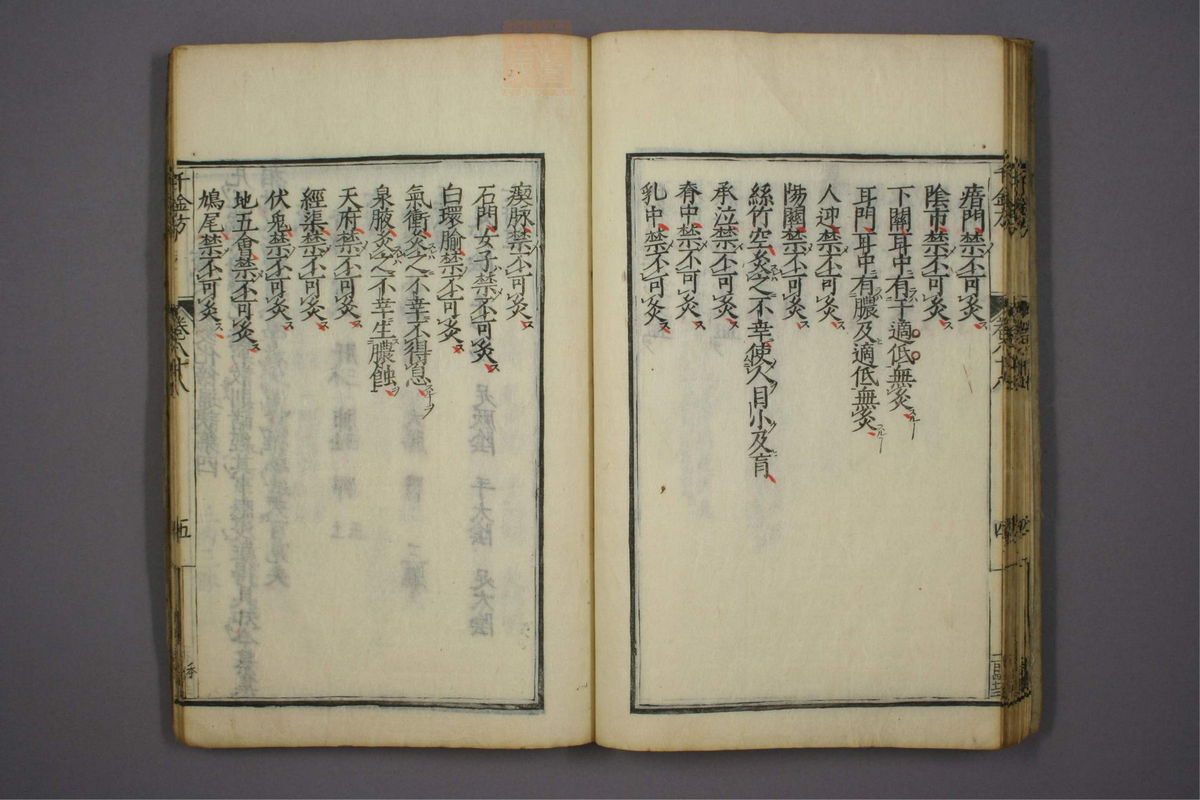 瘖門禁不可灸
陰市禁不可灸
下關耳中有干適低無灸
耳門耳中有膿及適低無灸
人迎禁不可灸
陽關禁不可灸
絲竹空灸之不幸使人目小及盲
承泣禁不可灸
脊中禁不可灸
乳中禁不可灸
瘈脉禁不可灸
石門女子禁不可灸
白環腧禁不可灸
氣衝灸之不幸不得息
泉腋灸之不幸生膿蝕
天府禁不可灸
經渠禁不可灸
伏兔禁不可灸
地五會禁不可灸
鳩尾禁不可灸
千金方
五